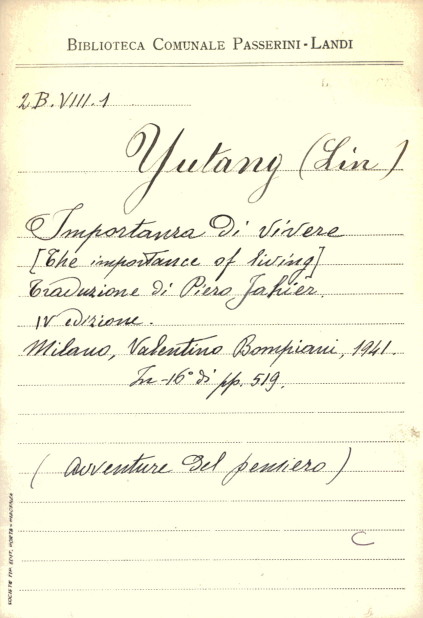 BIBLIOTECA COMUNALE PASSERINI-LANDI
2B.VIII.1
Yutang (Lin)
Importanza di vivere
[The importance of living]
Traduzione di Piero Jahier.
IV edizione.
Milano, Valentino Bompiani, 1941.
In-16° di pp. 519.
(Avventure del pensiero)
C